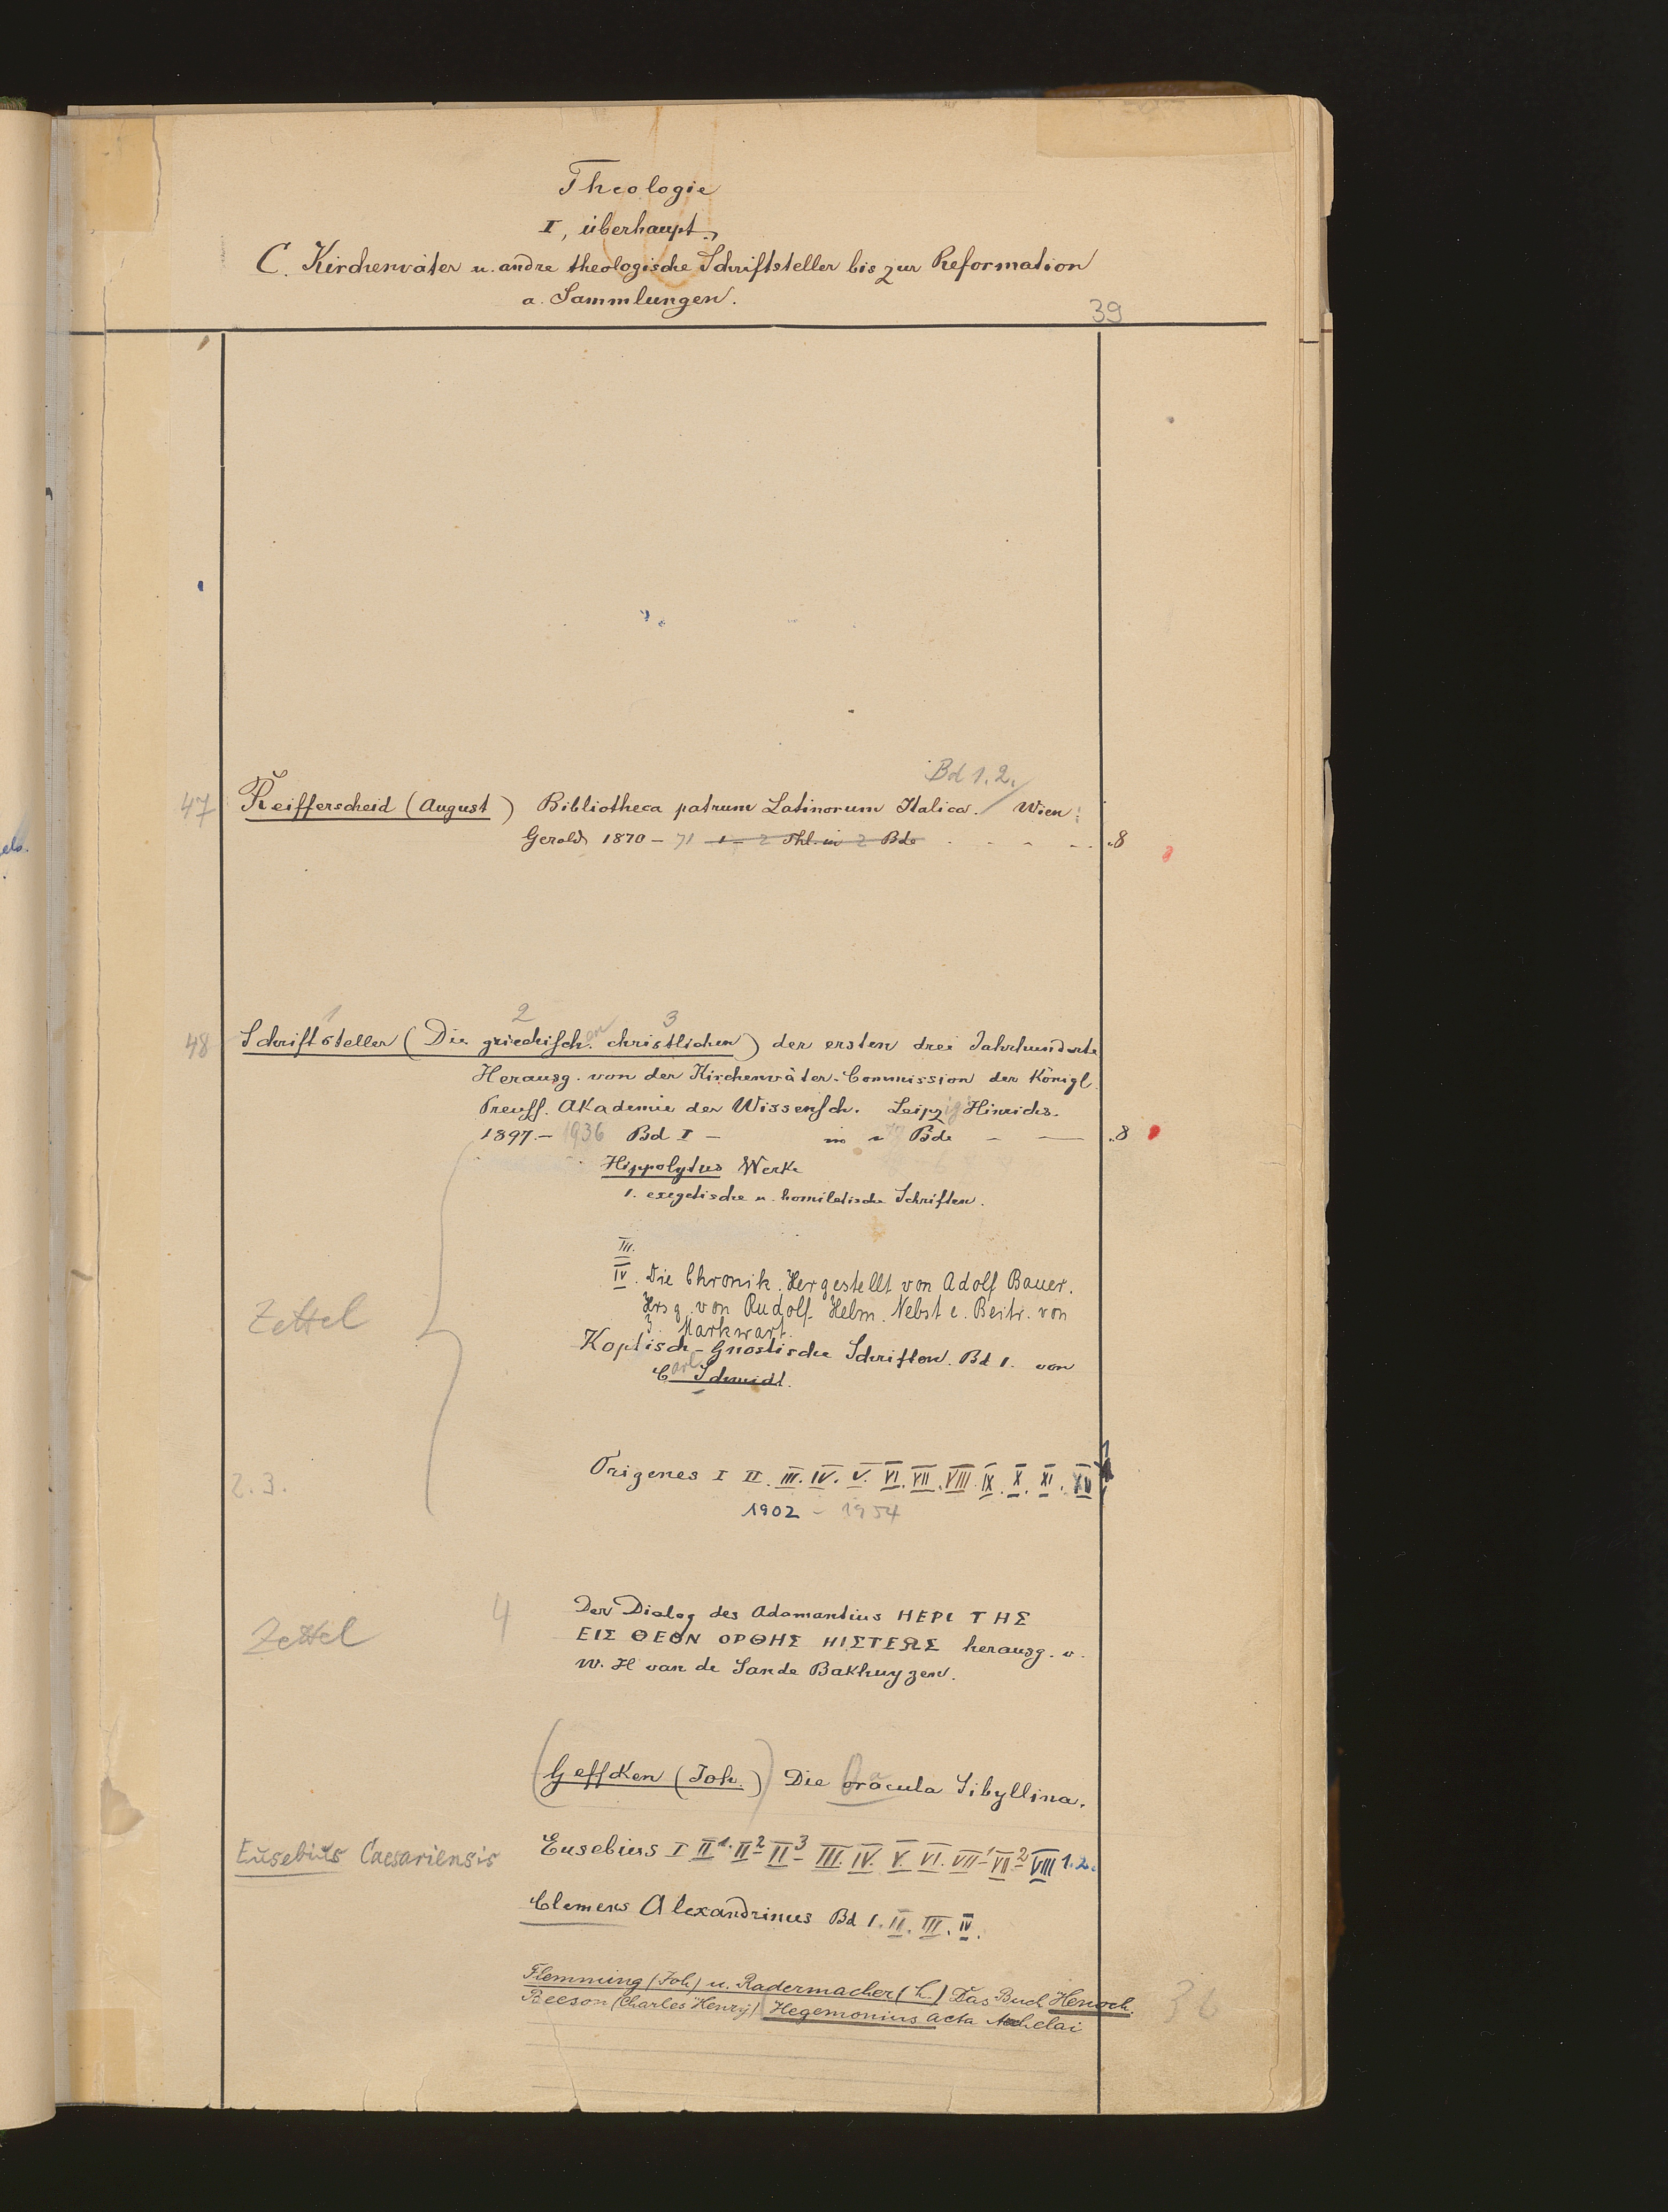 Theologie
I, überhaupt.
C. Kirchenväter u. andre theologische Schriftsteller bis zur Reformation
a. Sammlungen.
39
Bd 1.2.
47 Reifferscheid (August) Bibliotheca patrum Latinorum Italica. Wien:
Gerold 1870 – 71 1 – 2 Thl. in 2 Bde .8
1 2 3
48 Schriftsteller (Die griechisch. en christlichen) der ersten drei Jahrhunderte
Herausg. von der Kirchenväter-Commission der Königl.
Preuss. Akademie der Wissensch. Leipzig Hinrichs.
1897.– 1936 Bd I – in Bde – — .8
Hippolytus Werke
1. exegetische u. homiletische Schriften.
III.
IV. Die Chronik. Hergestellt von Adolf Bauer.
Hrsg. von Rudolf Helm. Nebst e. Beitr. von
Zettel
J. Markwart.
Koptisch-Gnostische Schriften. Bd 1. von
Carl Schmidt.
2.3. Origenes I II. III. IV. V. VI. VII. VIII. IX. X. XI. XII
1902 – 1954
Zettel 4 Der Dialog des Adamantius ΠΕΡΙ ΤΗΣ
ΕΙΣ ΘΕΟΝ ΟΡΘΗΣ ΠΙΣΤΕΩΣ herausg. v.
W. H van de Sande Bakhuyzen.
(Geffcken (Joh.)) Die Oracula Sibyllina.
Eusebius Caesariensis Eusebius I II¹. II² II³ III. IV. V. VI. VII¹ VII² VIII 1.2.
Clemens Alexandrinus Bd I. II. III. IV.
Flemming (Joh) u. Radermacher (L.) Das Buch Henoch.
Beeson (Charles Henry) Hegemonius Acta Archelai